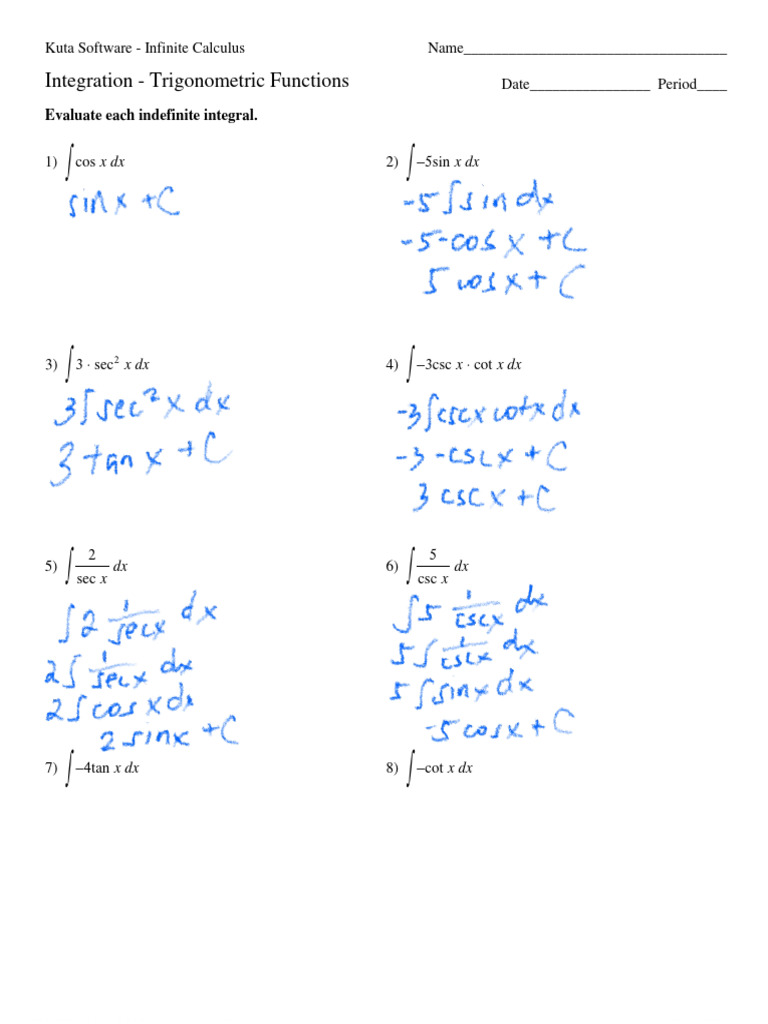 Kuta Software - Infinite Calculus
Name___________________________________
Integration - Trigonometric Functions
Date________________ Period____
Evaluate each indefinite integral.
1) ∫cos x dx
sin x + C
2) ∫–5sin x dx
-5∫sin dx
-5-cos x + C
5 cos x + C
3) ∫3 · sec² x dx
3∫sec² x dx
3 tan x + C
4) ∫–3csc x · cot x dx
-3∫csc x cot x dx
-3-csc x + C
3 csc x + C
5) ∫ 2/sec x dx
∫2 1/sec x dx
2∫ 1/sec x dx
2∫cos x dx
2 sin x + C
6) ∫ 5/csc x dx
∫5 1/csc x dx
5∫ 1/csc x dx
5∫sin x dx
-5 cos x + C
7) ∫–4tan x dx
8) ∫–cot x dx